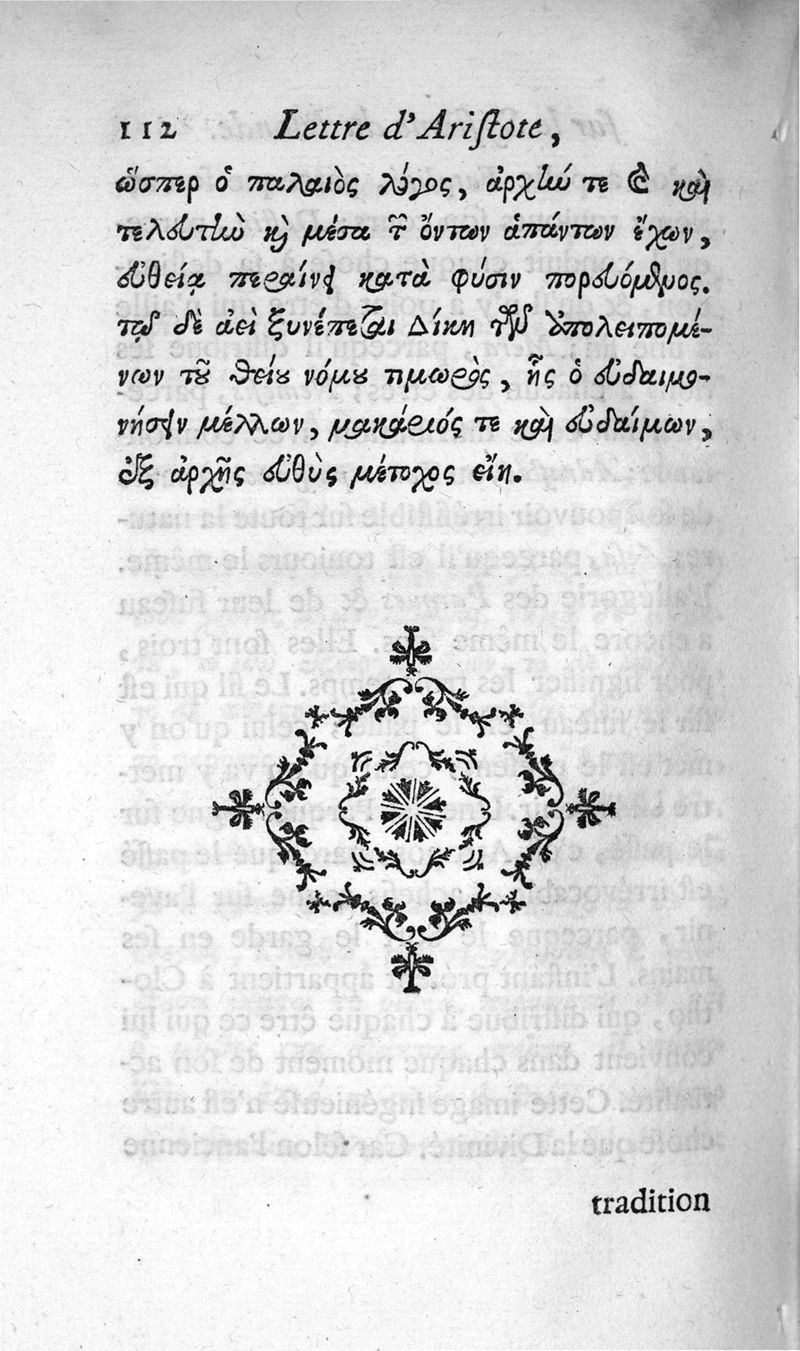 112 Lettre d'Ariſtote,
ὥσπερ ὁ παλαιὸς λόγος, ἀρχήν τε καὶ
τελευτὴν καὶ μέσα τῶν ὄντων ἁπάντων ἔχων,
εὐθείᾳ περαίνει κατὰ φύσιν πορευόμενος.
τῷ δὲ ἀεὶ ξυνέπεται Δίκη τῶν ἀπολειπομέ-
νων τοῦ θείου νόμου τιμωρὸς, ἧς ὁ εὐδαιμο-
νήσειν μέλλων, μακάριός τε καὶ εὐδαίμων,
ἐξ ἀρχῆς εὐθὺς μέτοχος εἴη.
tradition